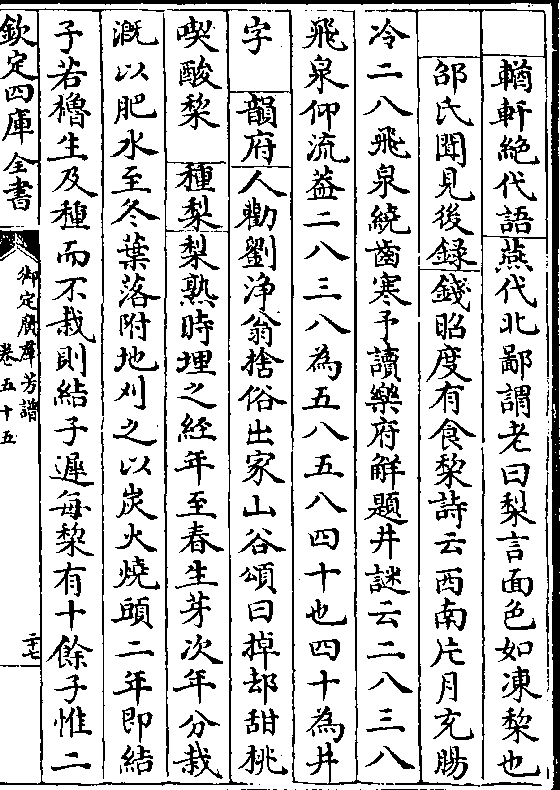 輶軒絶代語燕代北鄙謂老曰梨言面色如凍棃也
邵氏聞見後録錢昭度有食棃詩云西南片月充腸
冷二八飛泉繞齒寒予讀樂府解題井謎云二八三八
飛泉仰流葢二八三八為五八五八四十也四十為井
字　韻府人勸劉浄翁捨俗出家山谷頌曰掉却甜桃
喫酸棃　種梨梨熟時埋之經年至春生芽次年分栽
溉以肥水至冬葉落附地刈之以炭火燒頭二年即結
子若櫓生及種而不栽則結子遲每棃有十餘子惟二
欽定四庫全書
御定廣羣芳譜
卷五十五
二七